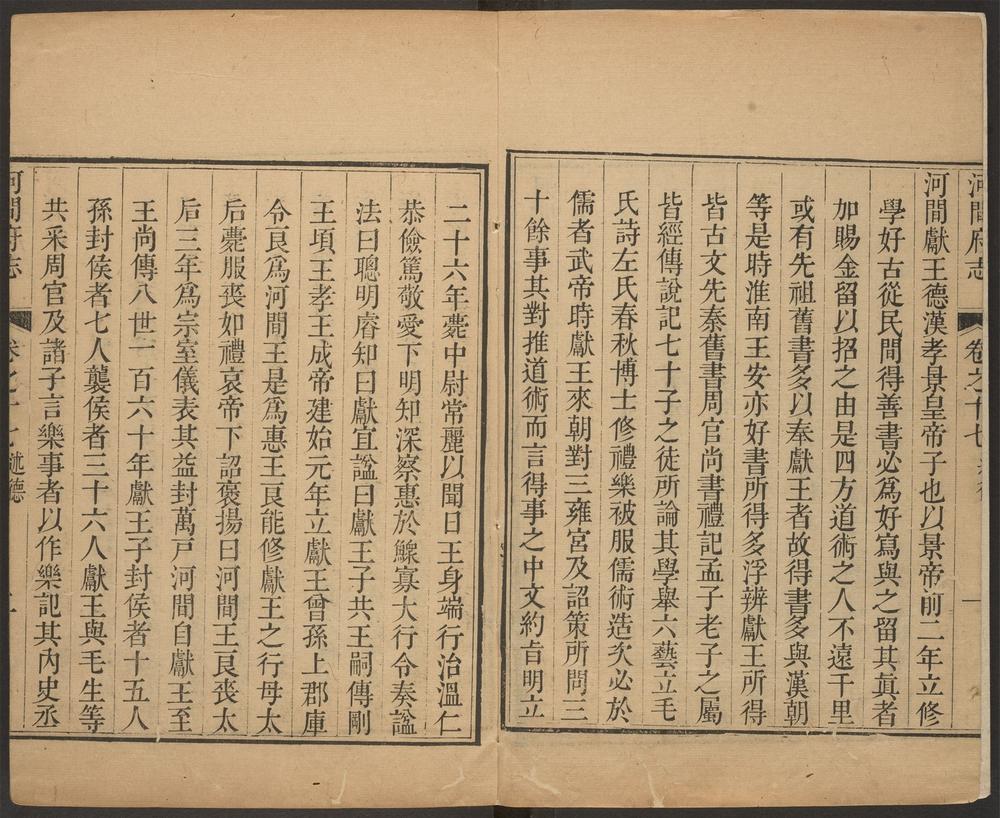 河間府志
卷之十七
一
河間獻王德漢孝景皇帝子也以景帝前二年立修
學好古從民間得善書必爲好寫與之留其眞者
加賜金留以招之由是四方道術之人不遠千里
或有先祖舊書多以奉獻王者故得書多與漢朝
等是時淮南王安亦好書所得多浮辨獻王所得
皆古文先秦舊書周官尚書禮記孟子老子之屬
皆經傳說記七十子之徒所論其學舉六藝立毛
氏詩左氏春秋博士修禮樂被服儒術造次必於
儒者武帝時獻王來朝對三雍宮及詔策所問三
十餘事其對推道術而言得事之中文約㫖明立
二十六年薨中尉常麗以聞曰王身端行治溫仁
恭儉篤敬愛下明知深察惠於鰥寡大行令奏謚
法曰聰明睿知曰獻宜謚曰獻王子共王嗣傳剛
王頃王孝王成帝建始元年立獻王曾孫上郡庫
令良爲河間王是爲惠王良能修獻王之行母太
后薨服喪如禮哀帝下詔褒揚曰河間王良喪太
后三年爲宗室儀表其益封萬戸河間自獻王至
王尚傳八世一百六十年獻王子封侯者十五人
孫封侯者七人襲侯者三十六人獻王與毛生等
共采周官及諸子言樂事者以作樂記其內史丞
河間府志
卷之十七
述德